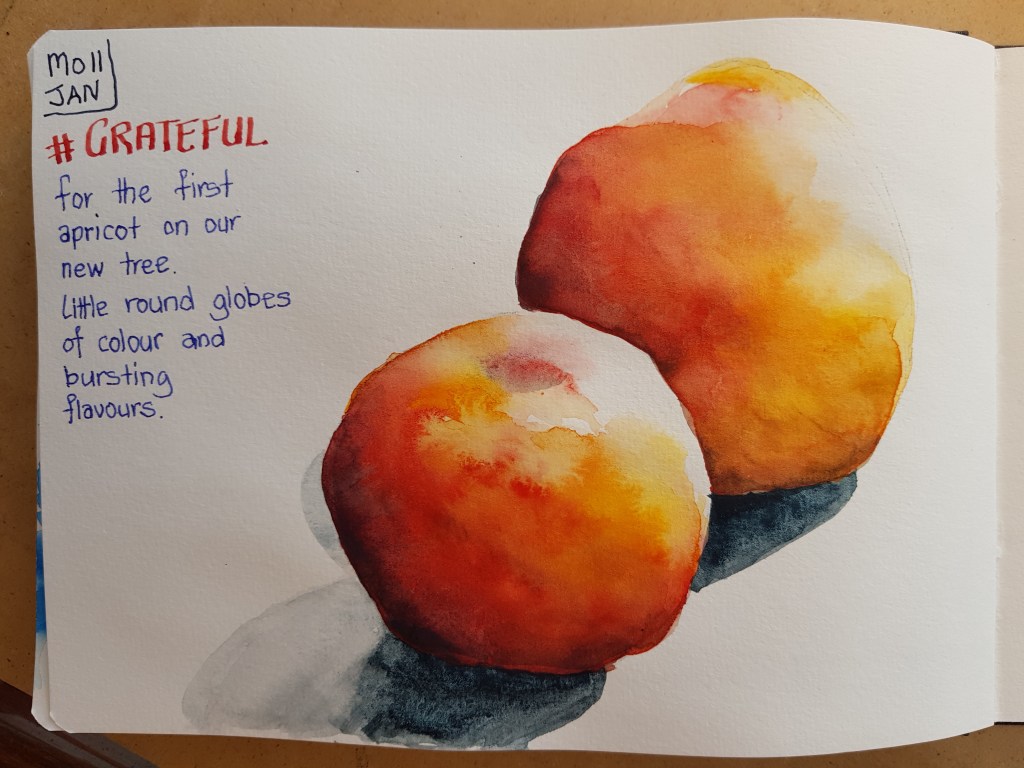 Mo 11
JAN
# GRATEFUL
for the first
apricot on our
new tree.
little round globes
of colour and
bursting
flavours.